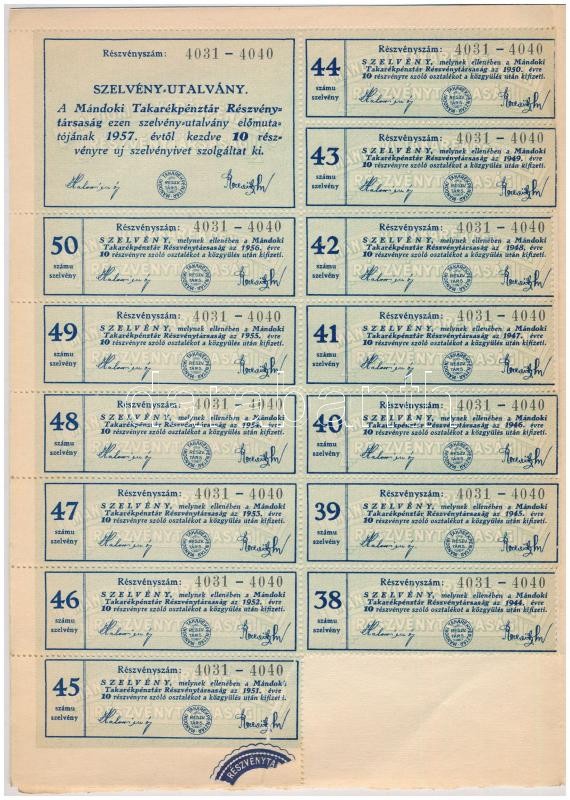 Részvényszám: 4031 — 4040
SZELVÉNY-UTALVÁNY.
A Mándoki Takarékpénztár Részvény-
társaság ezen szelvény-utalvány előmuta-
tójának 1957. évtől kezdve 10 rész-
vényre uj szelvényivet szolgáltat ki.
50
számu
szelvény
Részvényszám: 4031 — 4040
SZELVÉNY, melynek ellenében a Mándoki
Takarékpénztár Részvénytársaság az 1956. évre
10 részvényre szóló osztalékot a közgyülés után kifizeti.
49
számu
szelvény
Részvényszám: 4031 — 4040
SZELVÉNY, melynek ellenében a Mándoki
Takarékpénztár Részvénytársaság az 1955. évre
10 részvényre szóló osztalékot a közgyülés után kifizeti.
48
számu
szelvény
Részvényszám: 4031 — 4040
SZELVÉNY, melynek ellenében a Mándoki
Takarékpénztár Részvénytársaság az 1954. évre
10 részvényre szóló osztalékot a közgyülés után kifizeti.
47
számu
szelvény
Részvényszám: 4031 — 4040
SZELVÉNY, melynek ellenében a Mándoki
Takarékpénztár Részvénytársaság az 1953. évre
10 részvényre szóló osztalékot a közgyülés után kifizeti.
46
számu
szelvény
Részvényszám: 4031 — 4040
SZELVÉNY, melynek ellenében a Mándoki
Takarékpénztár Részvénytársaság az 1952. évre
10 részvényre szóló osztalékot a közgyülés után kifizeti.
45
számu
szelvény
Részvényszám: 4031 — 4040
SZELVÉNY, melynek ellenében a Mándoki
Takarékpénztár Részvénytársaság az 1951. évre
10 részvényre szóló osztalékot a közgyülés után kifizeti.
RÉSZVÉNYTÁ
44
számu
szelvény
Részvényszám: 4031 — 4040
SZELVÉNY, melynek ellenében a Mándoki
Takarékpénztár Részvénytársaság az 1950. évre
10 részvényre szóló osztalékot a közgyülés után kifizeti.
43
számu
szelvény
Részvényszám: 4031 — 4040
SZELVÉNY, melynek ellenében a Mándoki
Takarékpénztár Részvénytársaság az 1949. évre
10 részvényre szóló osztalékot a közgyülés után kifizeti.
42
számu
szelvény
Részvényszám: 4031 — 4040
SZELVÉNY, melynek ellenében a Mándoki
Takarékpénztár Részvénytársaság az 1948. évre
10 részvényre szóló osztalékot a közgyülés után kifizeti.
41
számu
szelvény
Részvényszám: 4031 — 4040
SZELVÉNY, melynek ellenében a Mándoki
Takarékpénztár Részvénytársaság az 1947. évre
10 részvényre szóló osztalékot a közgyülés után kifizeti.
40
számu
szelvény
Részvényszám: 4031 — 4040
SZELVÉNY, melynek ellenében a Mándoki
Takarékpénztár Részvénytársaság az 1946. évre
10 részvényre szóló osztalékot a közgyülés után kifizeti.
39
számu
szelvény
Részvényszám: 4031 — 4040
SZELVÉNY, melynek ellenében a Mándoki
Takarékpénztár Részvénytársaság az 1945. évre
10 részvényre szóló osztalékot a közgyülés után kifizeti.
38
számu
szelvény
Részvényszám: 4031 — 4040
SZELVÉNY, melynek ellenében a Mándoki
Takarékpénztár Részvénytársaság az 1944. évre
10 részvényre szóló osztalékot a közgyülés után kifizeti.